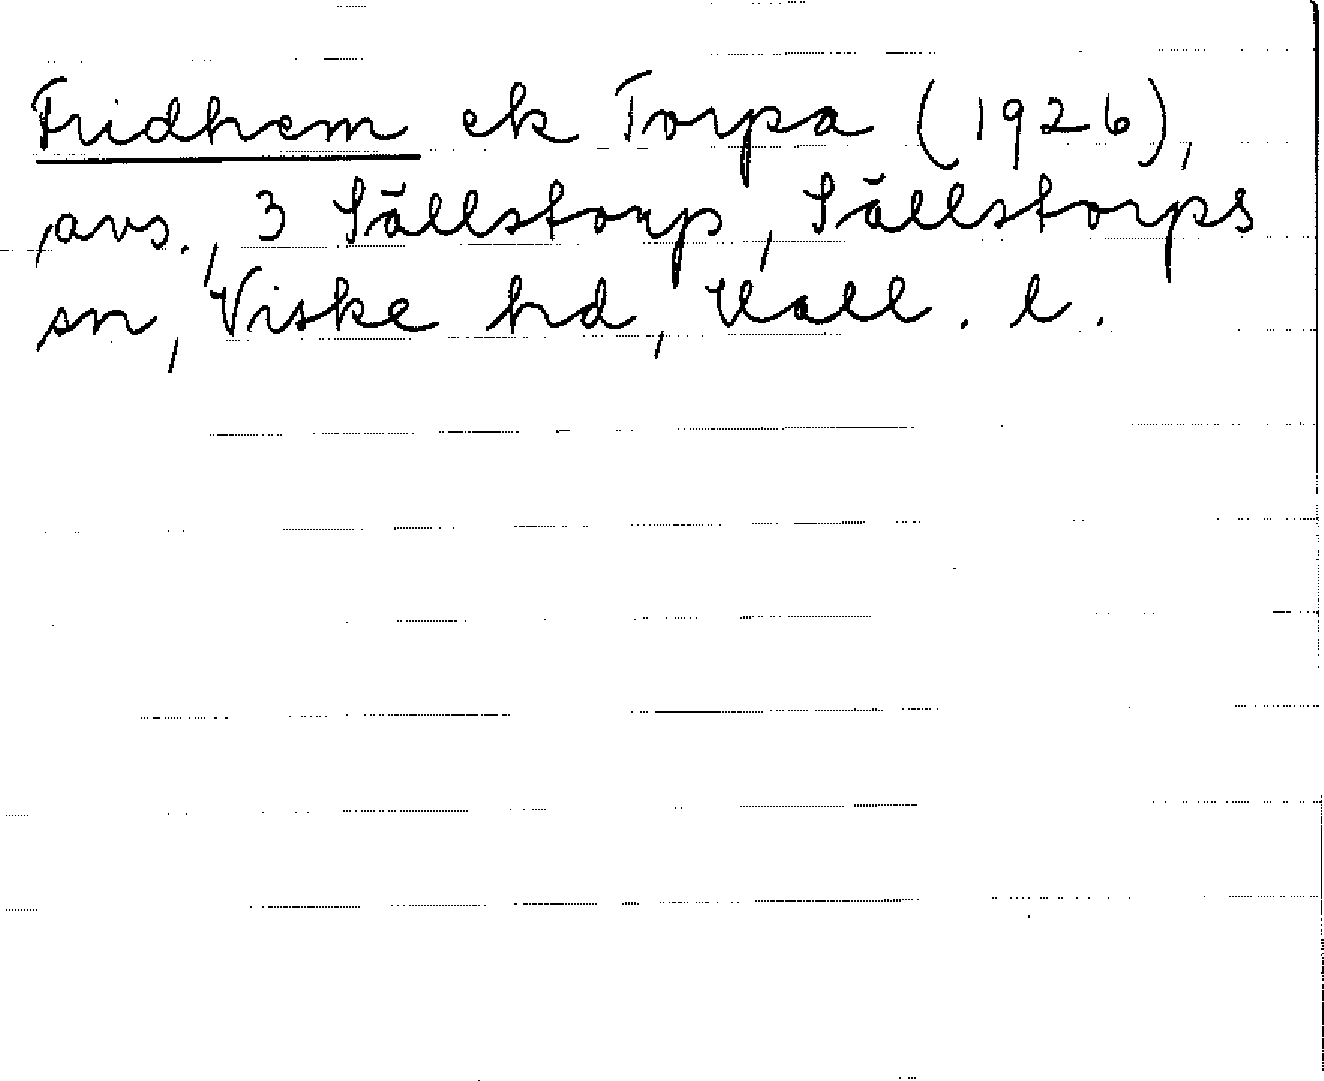 Fridhem ek Torpa (1926),
avs., 3 Sällstorp, Sällstorps
sn, Viske hd, Hall. l.